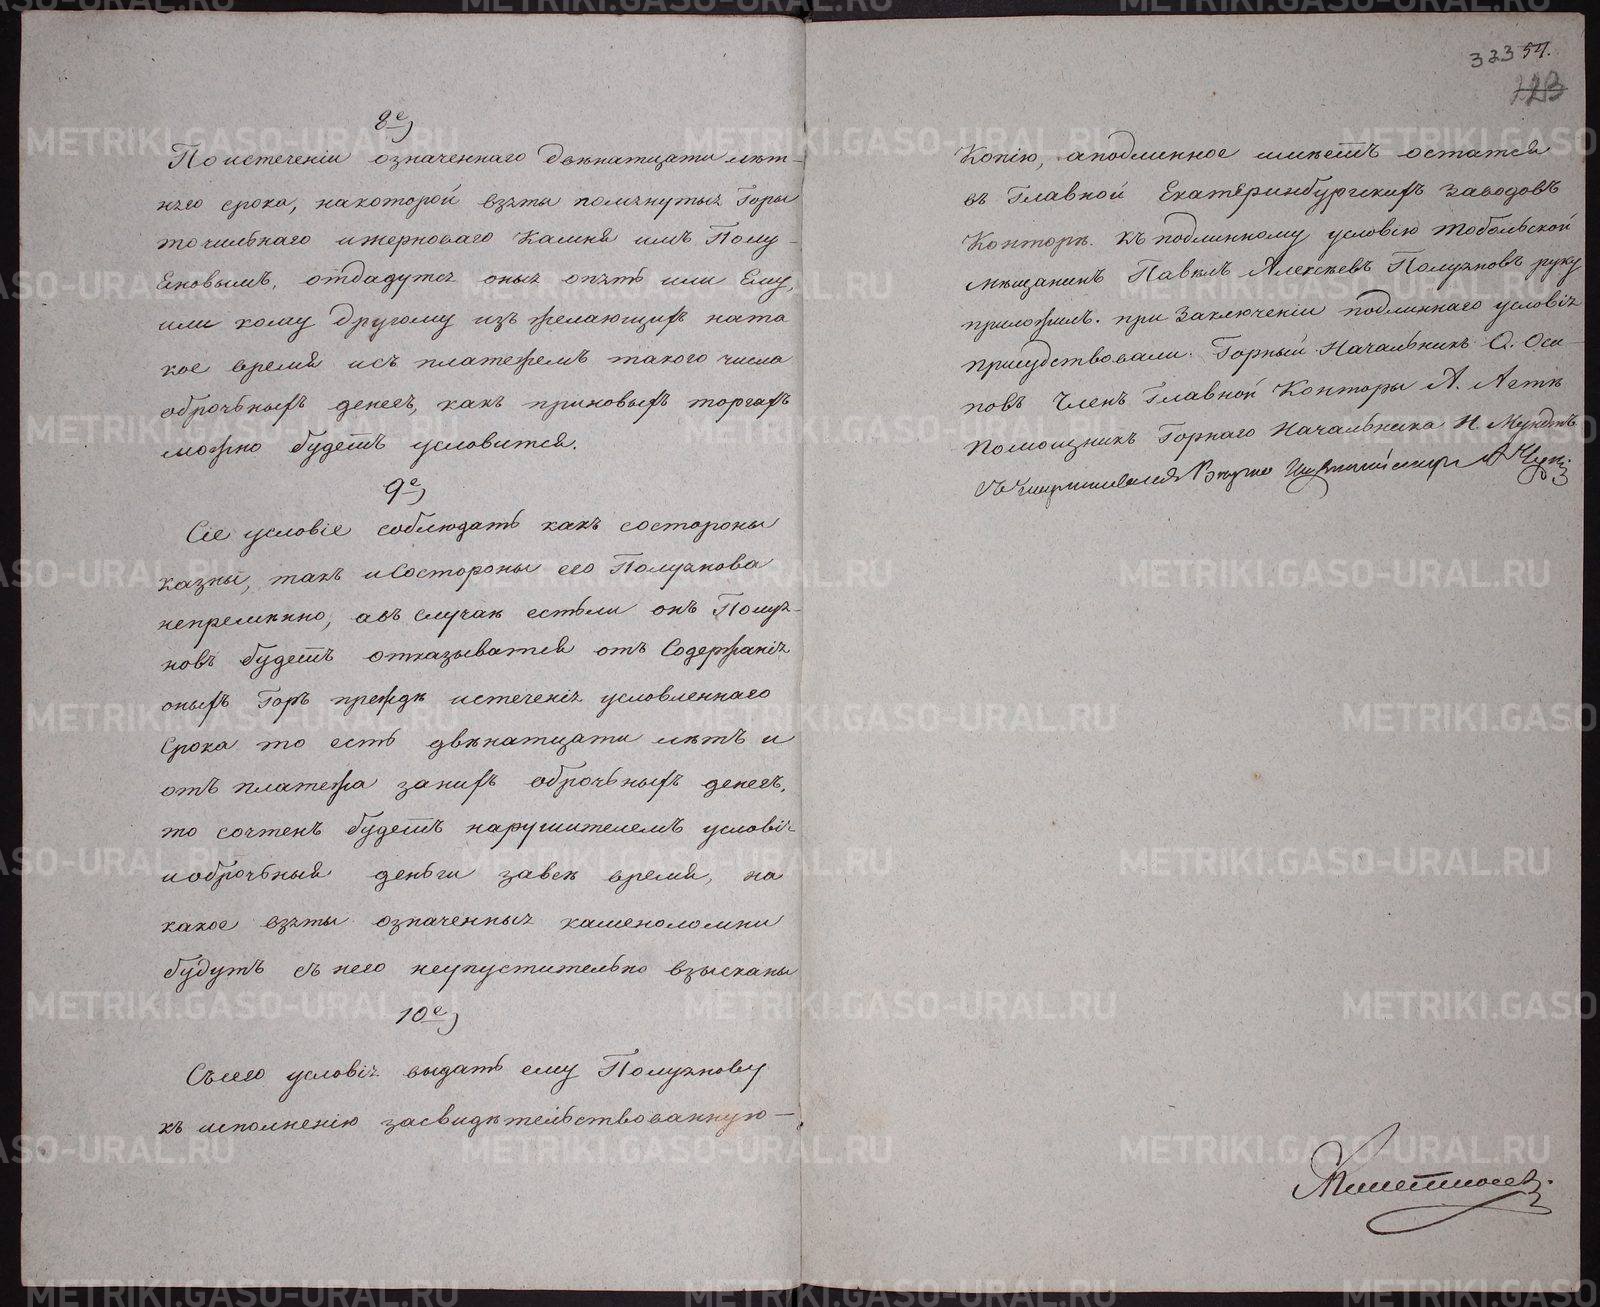 8е)
По истеченіи означеннаго двѣнатцати лѣт-
няго срока, накоторой взяты помянутыя Горы
точильнаго ижерноваго Камня имъ Полу-
Еновымъ, отдадутся оныя опять или Ему,
или кому другому изъ желающихъ ната
кое время исъ платежемъ такого числа
оброчныхъ денегъ, какъ приновыхъ торгахъ
можно будетъ условится.
9е)
Сіе условіе соблюдать какъ состороны
казны, такъ исостороны его Полуянова
непремѣнно, авъ случаѣ естьли онъ Полуя-
новъ будетъ отказыватся отъ Содержанія
оныхъ Горъ прежде истеченія условленнаго
Срока то есть двѣнатцати лѣтъ и
отъ платежа занихъ оброчныхъ денегъ,
то сочтенъ будетъ нарушителемъ условія
иоброчныя деньги завсе время, на
какое взяты означенныя каменоломни
будутъ съ него неупустительно взысканы
10е)
Съ сего условія выдать ему Полуянову
къ исполненію засвидѣтельствованную
323 57.
123
Копію, аподлинное имѣетъ остатся
въ Главной Екатеринбургскихъ Заводовъ
Конторѣ. къ подлинному условію тобольской
мѣщанинъ Павелъ Алексѣевъ Полуяновъ руку
приложилъ. при Заключеніи подлиннаго условія
присудствовали. Горный Начальникъ О. Оси-
повъ Членъ Главной Конторы А. Агте
Помощникъ Горнаго Начальника Н. Мундтъ
METRIKI.GASO-URAL.RU